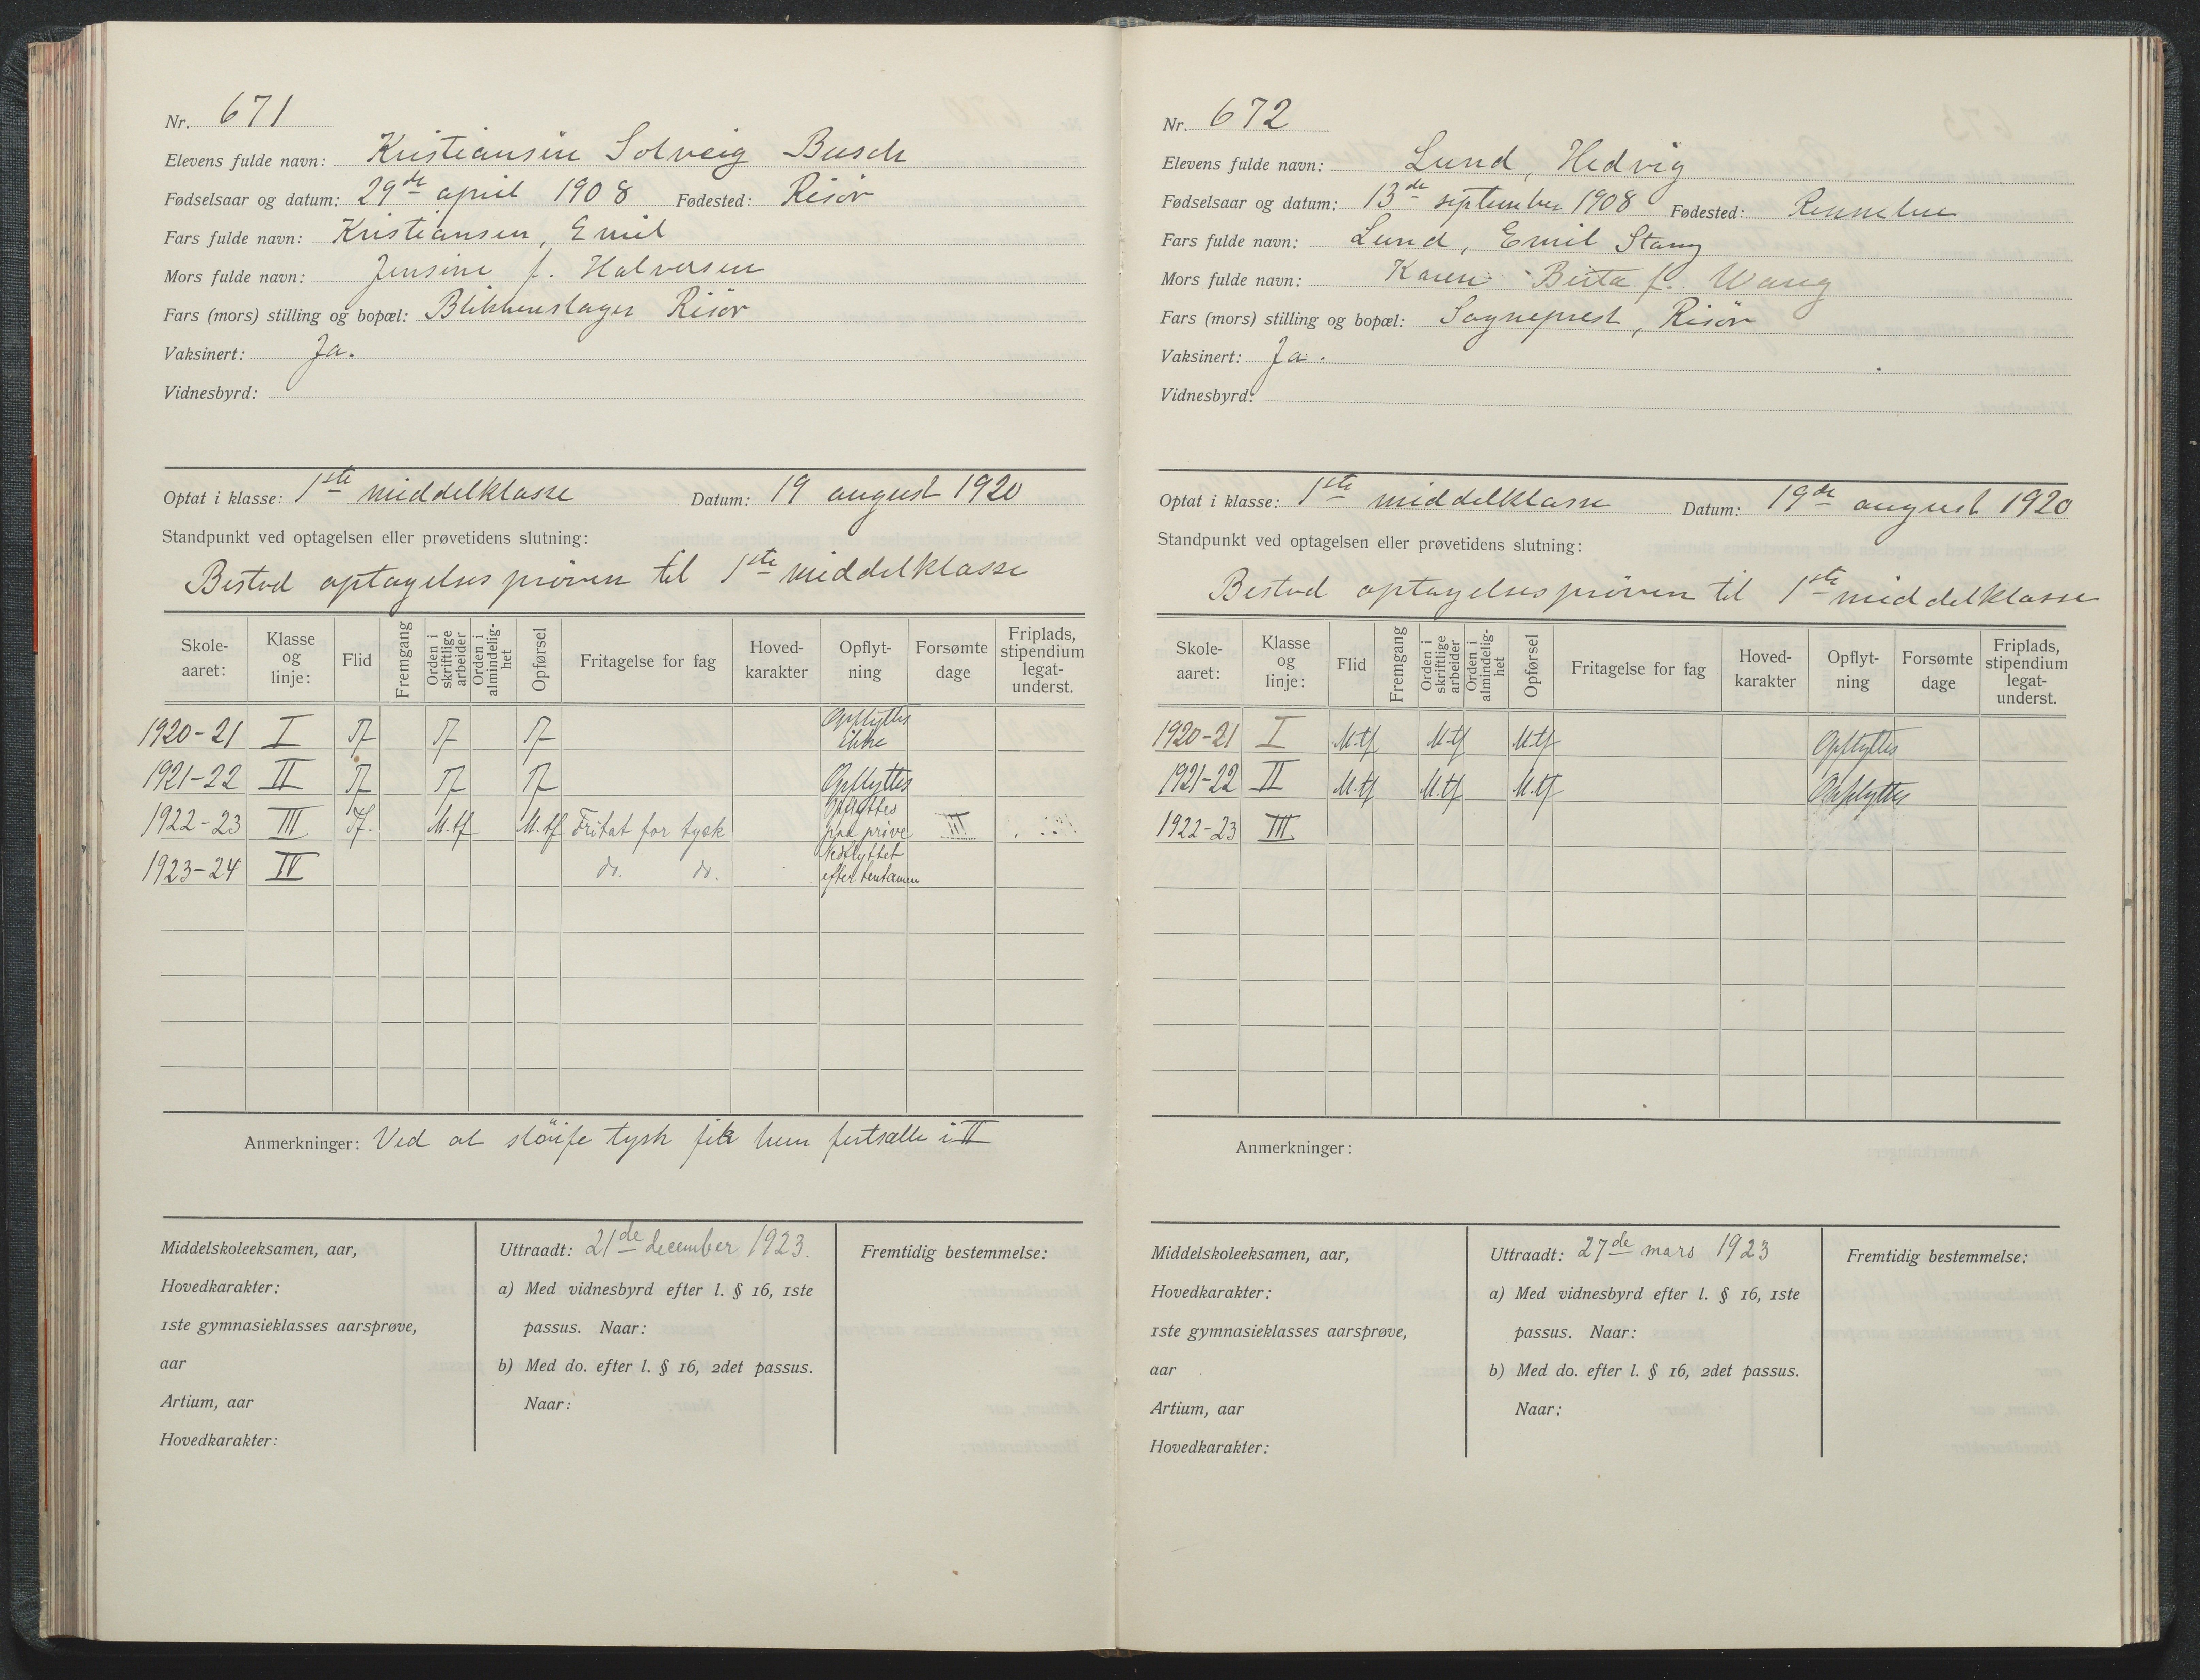 Nr. 671
Elevens fulde navn: Kristiansen Solveig Busch
Fødselsaar og datum: 29de april 1908 Fødested: Risör
Fars fulde navn: Kristiansen, Emil
Mors fulde navn: Jensine f. Halversen
Fars (mors) stilling og bopæl: Blikkenslager Risör
Vaksinert: Ja.
Vidnesbyrd:
Optat i klasse: 1ste middelklasse Datum: 19 august 1920
Standpunkt ved optagelsen eller prøvetidens slutning:
Bestod optagelsespröven til 1ste middelklasse
Skole-aaret: Klasse og linje: Flid Fremgang Orden i skriftlige arbeider Orden i almindelig-het Opførsel Fritagelse for fag Hoved-karakter Opflyt-ning Forsømte dage Friplads, stipendium legat-underst.
1920-21 I Tf Tf Tf Opflyttes ikke
1921-22 II Tf Tf Tf Opflyttes
1922-23 III Tf. M.tf M.tf Fritat for tysk Opflyttes paa prøve III
1923-24 IV do. do. Nedflyttet efter tentamen
Anmerkninger: Ved at slöife tysk fik hun fortsætte i II
Middelskoleeksamen, aar,
Hovedkarakter:
1ste gymnasieklasses aarsprøve,
aar
Artium, aar
Hovedkarakter:
Uttraadt: 21de december 1923.
a) Med vidnesbyrd efter l. § 16, 1ste
passus. Naar:
b) Med do. efter l. § 16, 2det passus.
Naar:
Fremtidig bestemmelse:
Nr. 672
Elevens fulde navn: Lund, Hedvig
Fødselsaar og datum: 13de september 1908 Fødested: Rennebu
Fars fulde navn: Lund, Emil Stang
Mors fulde navn: Karen Berta f. Wang
Fars (mors) stilling og bopæl: Sogneprest, Risör
Vaksinert: Ja.
Vidnesbyrd:
Optat i klasse: 1ste middelklasse Datum: 19de august 1920
Standpunkt ved optagelsen eller prøvetidens slutning:
Bestod optagelsespröven til 1ste middelklasse
Skole-aaret: Klasse og linje: Flid Fremgang Orden i skriftlige arbeider Orden i almindelig-het Opførsel Fritagelse for fag Hoved-karakter Opflyt-ning Forsømte dage Friplads, stipendium legat-underst.
1920-21 I M.tf M.tf M.tf Opflyttes
1921-22 II M.tf M.tf M.tf Opflyttes
1922-23 III
Anmerkninger:
Middelskoleeksamen, aar,
Hovedkarakter:
1ste gymnasieklasses aarsprøve,
aar
Artium, aar
Hovedkarakter:
Uttraadt: 27de mars 1923
a) Med vidnesbyrd efter l. § 16, 1ste
passus. Naar:
b) Med do. efter l. § 16, 2det passus.
Naar:
Fremtidig bestemmelse: